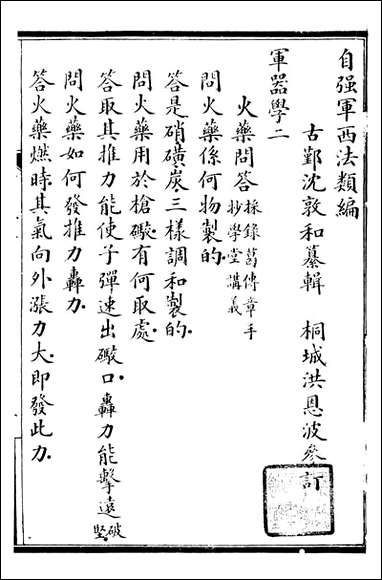 自强軍西法類編
古鄞沈敦和纂輯　桐城洪恩波參訂
軍器學二
火藥問答採錄葛傳章手
抄學堂講義
問火藥係何物製的
答是硝磺炭三樣調和製的
問火藥用於槍礮有何取處
答取其推力能使子彈速出礮口轟力能擊遠破
堅
問火藥如何發推力轟力
答火藥燃時其氣向外漲力大即發此力